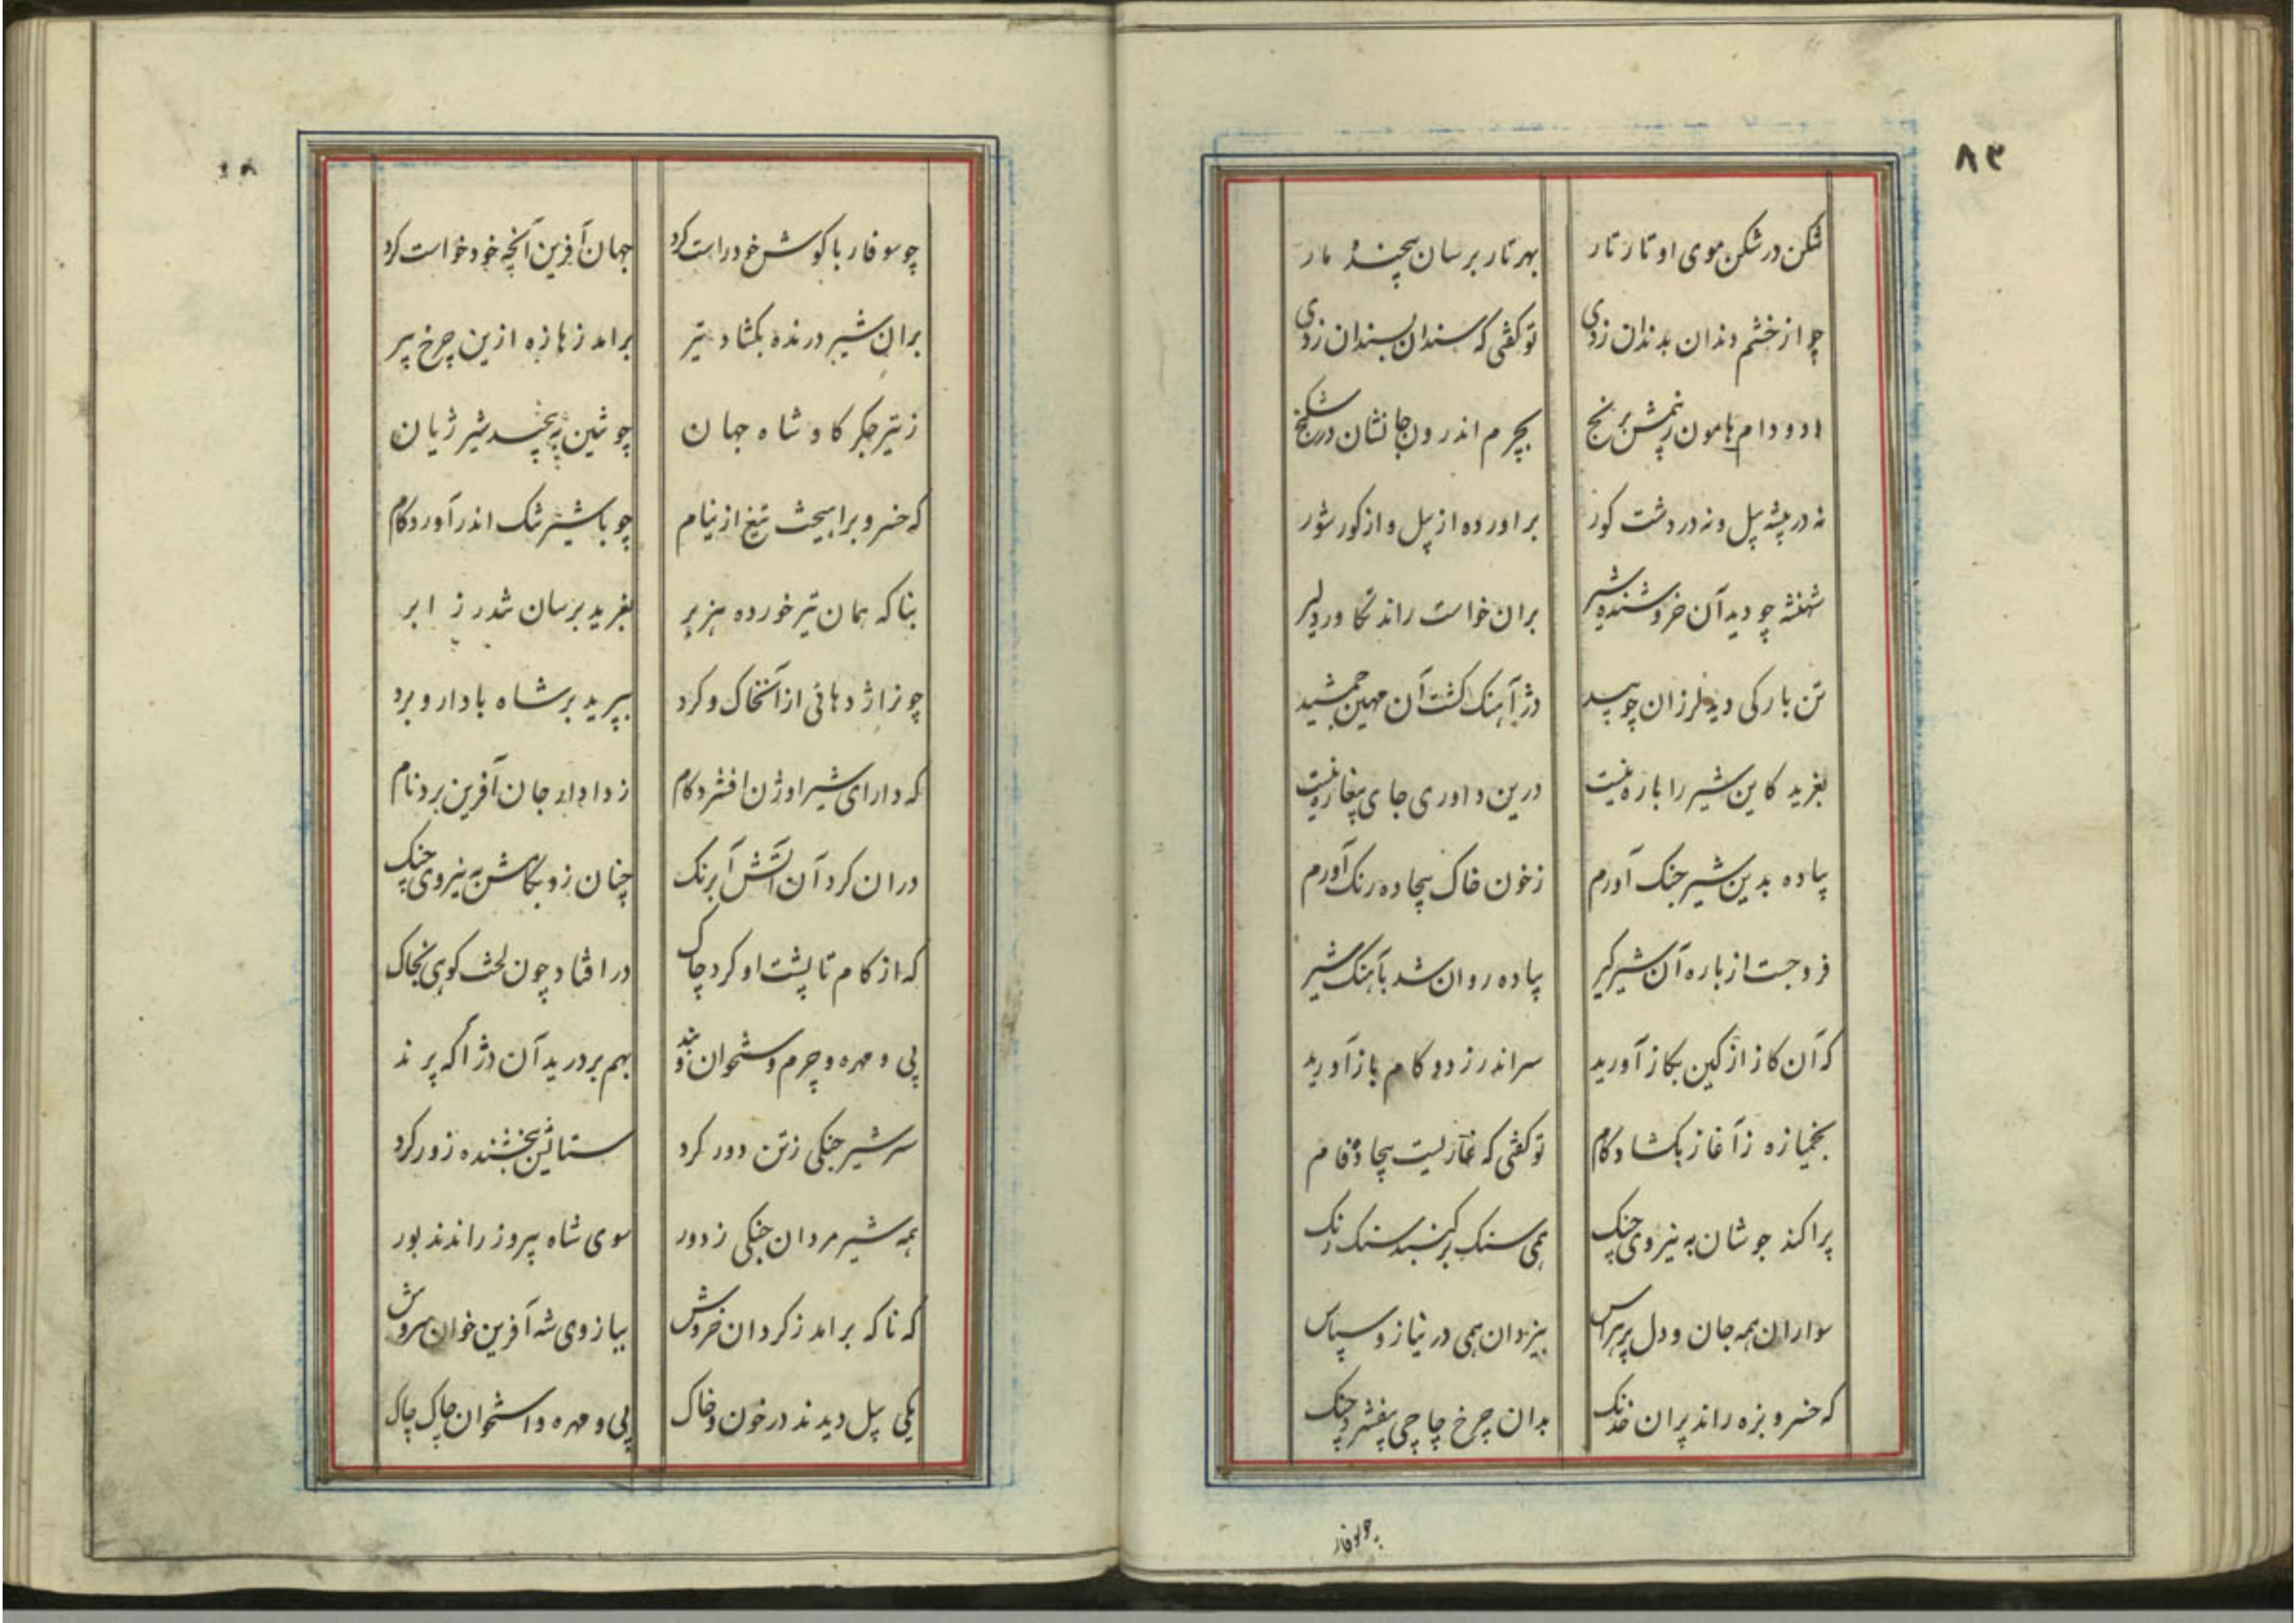 ۸۳
شکن در شکن موی او تار تار
بهر تار برسان پیچنده مار
چو از خشم دندان بدندان زدی
تو کفتی که سندان بسندان زدی
دد و دام هامون ز بیمش برنج
بچرم اندرون جانشان در شکنج
نه در بیشه پیل و نه در دشت کور
براورده از پیل و از کور شور
شهنشه چو دید آن خروشنده شیر
بران خواست راند تکاور دلیر
تن بارکی دید لرزان چو بید
دژ آهنک کشت آن مهین جمشید
بغرید کاین شیر را باره نیست
درین داوری جای پیغاره نیست
پیاده بدین شیر جنک آورم
ز خون خاک بیجاده رنک آورم
فرو جست از باره آن شیرکیر
پیاده روان شد بآهنک شیر
که آن کاز از کین بکاز آورید
سر اندر زد و کام باز آورید
بخمیازه ز آغاز بکشاد کام
تو کفتی که غاریست بیجاده فام
پراکند جوشان به نیروی چنک
همی سنک بر کنبد سنک رنک
سواران همه جان و دل پرهراس
بیزدان همی در نیاز و سپاس
که خسرو بزه راند پران خدنک
بدان چرخ چاچی بیفشرد چنک
چو سوفار
چو سوفار با کوش خود راست کرد
جهان آفرین آنچه خود خواست کرد
بران شیر درنده بکشاد تیر
برامد زهازه ازین چرخ پیر
ز تیر جکر کاو شاه جهان
چو تنین به پیچید شیر ژیان
که خسرو براهیخت تیغ از نیام
چو با شیر تنک اندر آورد کام
بناکه همان تیر خورده هزبر
بغرید برسان تندر ز ابر
چو نر اژدهائی از آن خاک و کرد
بپرید بر شاه با دار و برد
که دارای شیر اوژن افشرد کام
ز دادار جان آفرین برد نام
دران کرد آن آتش آبرنک
چنان زد بکامش به نیروی چنک
که از کام تا پشت او کرد چاک
در افتاد چون لخت کوهی بخاک
پی و مهره و چرم و ستخوان و بند
بهم بردرید آن دژ آکه پرند
سر شیر جنکی ز تن دور کرد
ستایش ببخشنده زور کرد
همه شیر مردان جنکی ز دور
سوی شاه پیروز راندند بور
که ناکه برامد ز کردان خروش
ببازوی شه آفرین خوان سروش
یکی پیل دیدند در خون و خاک
پی و مهره و استخوان چاک چاک